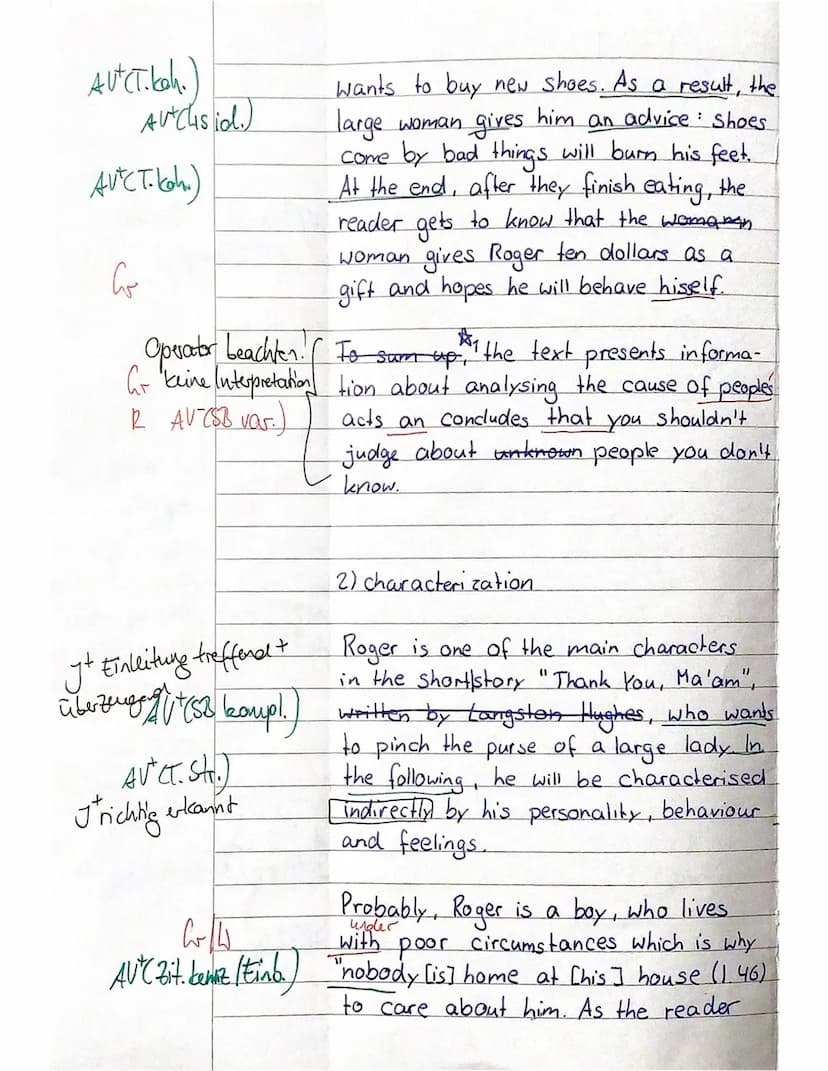 AV⁺(T.koh.) wants to buy new shoes. As a result, the
AV⁺(Is id.) large woman gives him an advice: shoes
come by bad things will burn his feet.
AV⁺(T.koh.) At the end, after they finish eating, the
reader gets to know that the
woman gives Roger ten dollars as a
Gr gift and hopes he will behave hisself.
Operator beachten! To sum up, ☆¹ the text presents informa-
Gr keine Interpretation tion about analysing the cause of people's
R AV⁻(SB var.) acts an concludes that you shouldn't
judge about unknown people you don't
know.
2) characterization
J⁺ Einleitung treffend + Roger is one of the main characters
überzeugend in the short|story "Thank You, Ma'am",
AV⁺(SB kompl.) written by Langston Hughes, who wants
to pinch the purse of a large lady. In
AV⁺(T.Str.) the following, he will be characterised
J⁺ richtig erkannt indirectly by his personality, behaviour
and feelings.
Probably, Roger is a boy, who lives
under
Gr/W with poor circumstances which is why
AV⁺(Zit.kennz/Einb.) "nobody [is] home at [his] house (l.46)
to care about him. As the reader